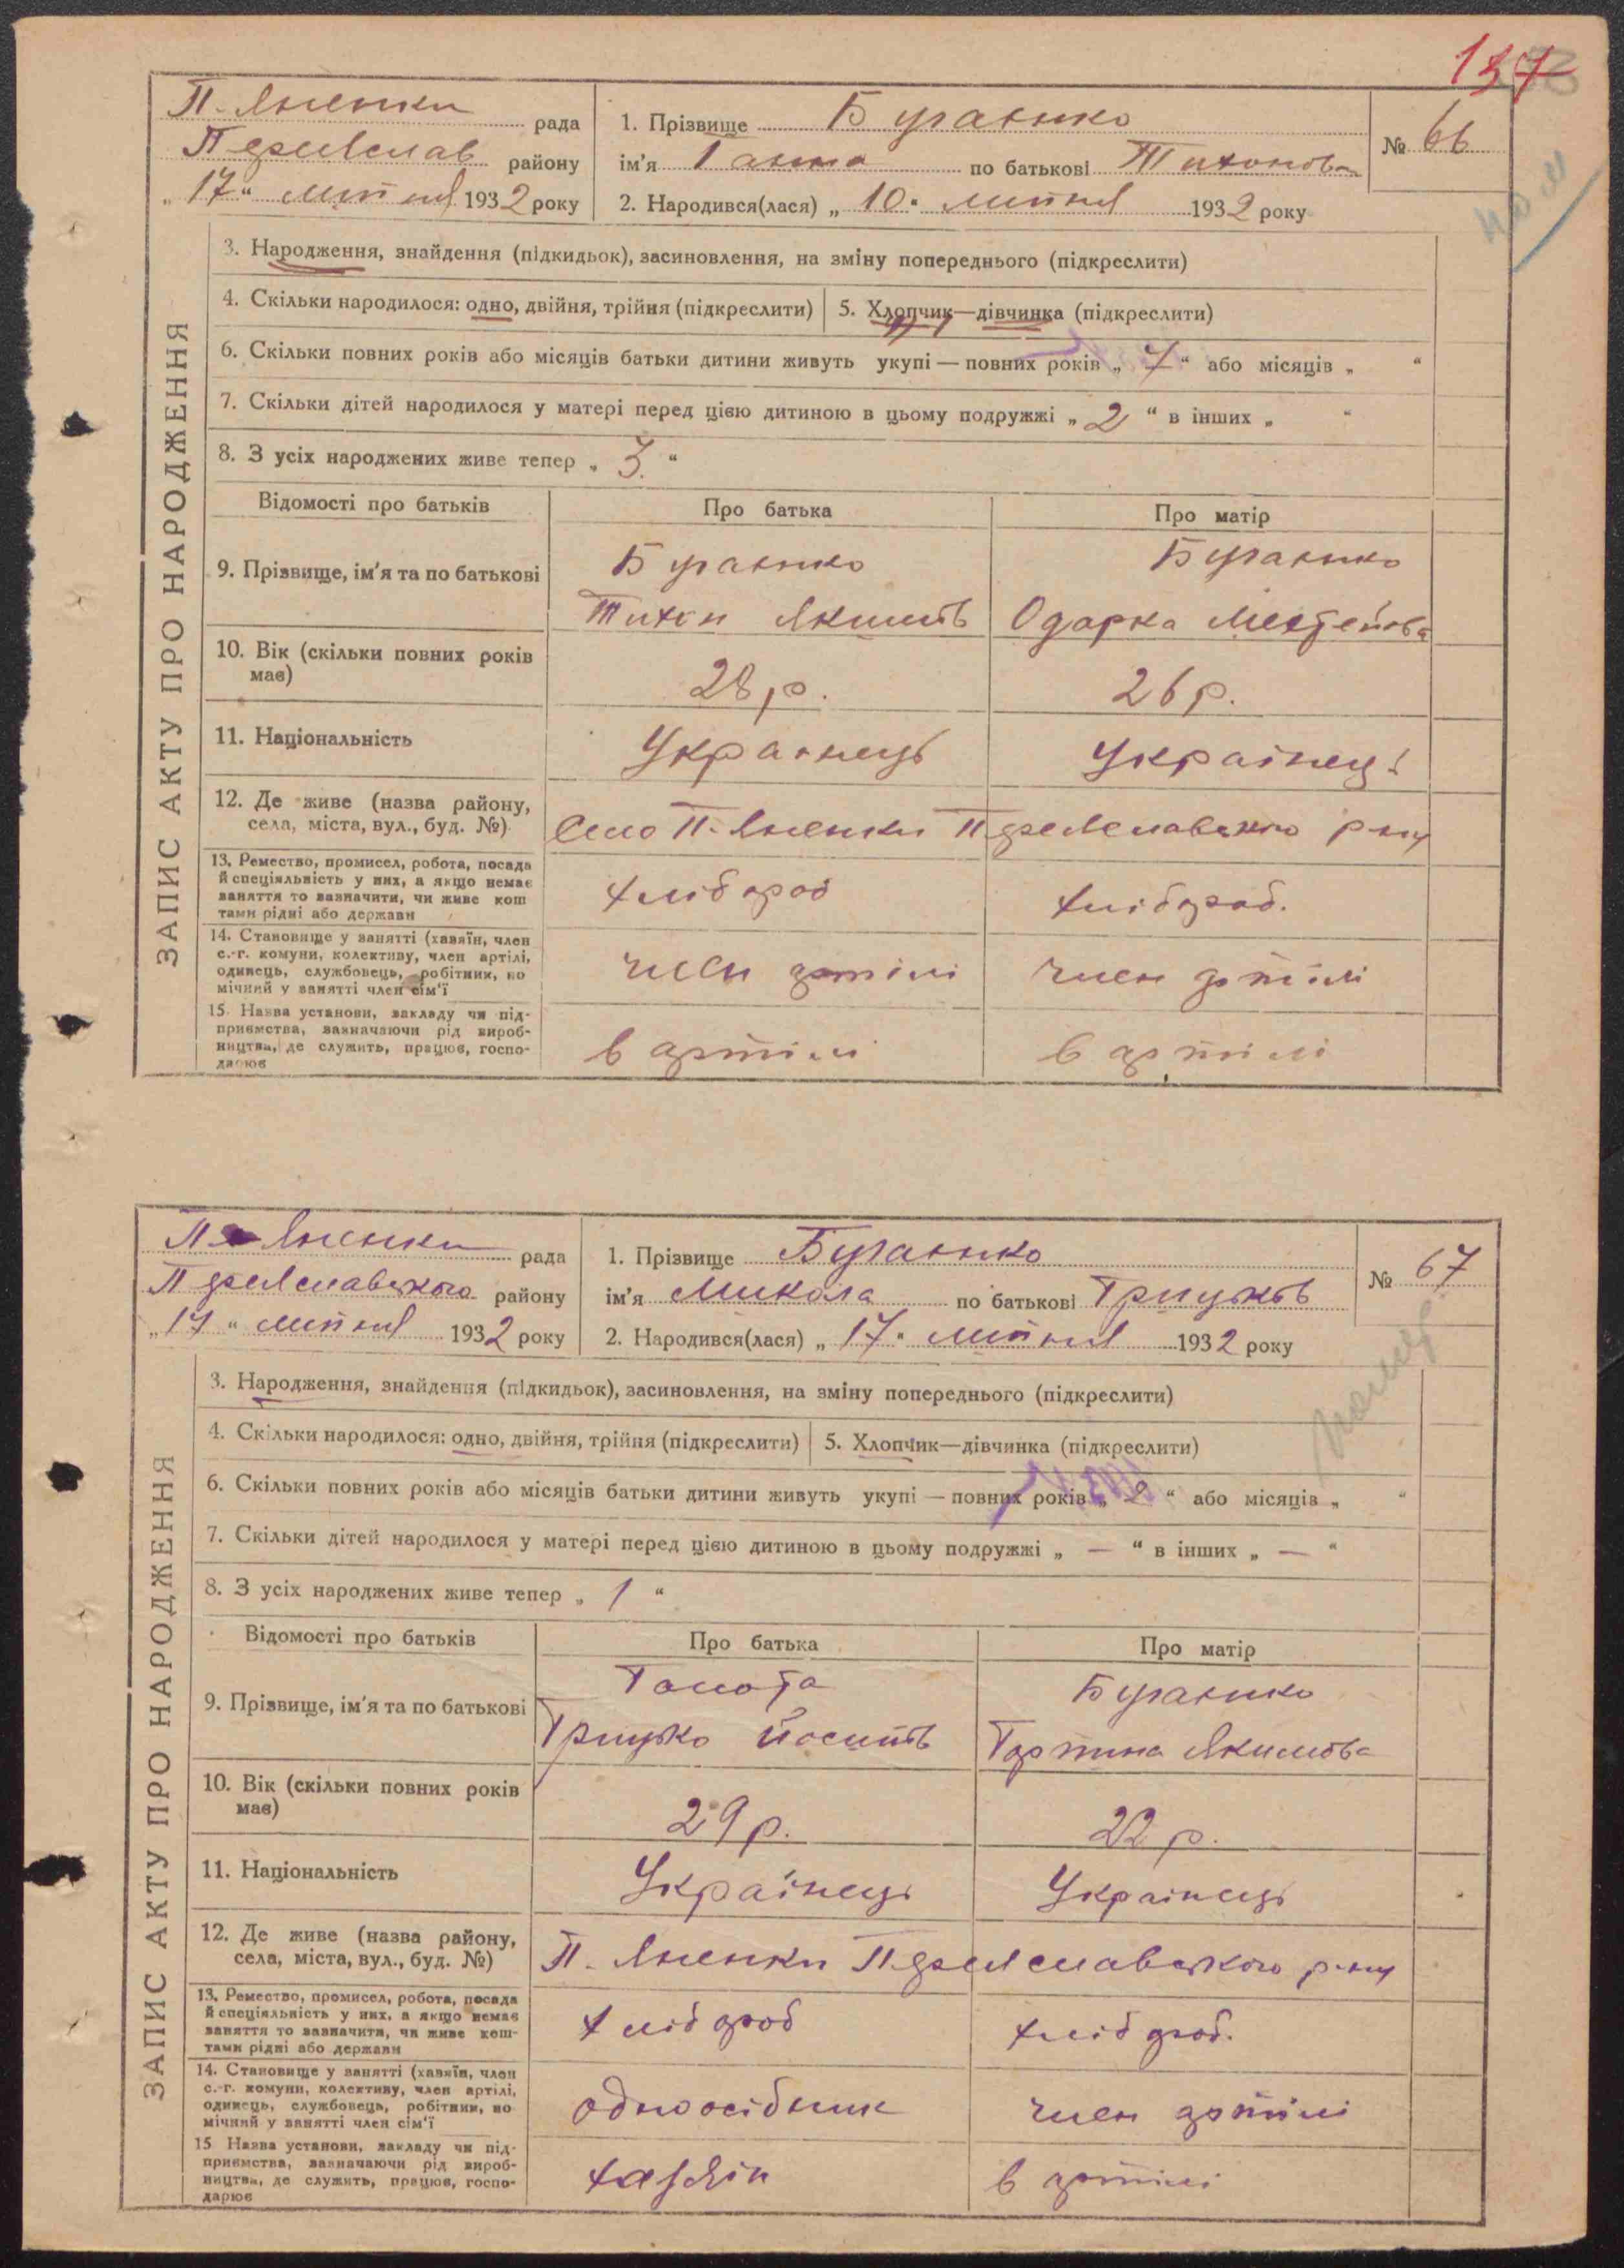 137
П-Яненки рада
Переяслав району
„17“ липня 1932 року
1. Прізвище Бугаенко
ім'я Ганна по батькові Тихонова
2. Народився(лася) „10“ липня 1932 року
№ 66
ЗАПИС АКТУ ПРО НАРОДЖЕННЯ
3. Народження, знайдення (підкидьок), засиновлення, на зміну попереднього (підкреслити)
4. Скільки народилося: одно, двійня, трійня (підкреслити) 5. Хлопчик—дівчинка (підкреслити)
6. Скільки повних років або місяців батьки дитини живуть укупі — повних років „7“ або місяців „ “
7. Скільки дітей народилося у матері перед цією дитиною в цьому подружжі „2“ в інших „ “
8. З усіх народжених живе тепер „3“
Відомості про батьків Про батька Про матір
9. Прізвище, ім'я та по батькові
Бугаенко Бугаенко
Тихін Якимів Одарка
10. Вік (скільки повних років має)
28 р. 26 р.
11. Національність
Українець Українець
12. Де живе (назва району, села, міста, вул., буд. №)
Село П-Яненки Переяславського р-ну
13. Ремество, промисел, робота, посада й спеціяльність у них, а якщо немає заняття то зазначити, чи живе кош тами рідні або держави
хлібороб хлібороб.
14. Становище у занятті (хазяїн, член с.-г. комуни, колективу, член артілі, одинець, службовець, робітник, по мічний у занятті член сім'ї
член артілі член артілі
15. Назва установи, закладу чи під- приємства, зазначаючи рід вироб- ництва, де служить, працює, госпо- дарює
в артілі в артілі
П-Яненки рада
Переяславського району
„17“ липня 1932 року
1. Прізвище Бугаенко
ім'я Микола по батькові Грицьків
2. Народився(лася) „17“ липня 1932 року
№ 67
ЗАПИС АКТУ ПРО НАРОДЖЕННЯ
3. Народження, знайдення (підкидьок), засиновлення, на зміну попереднього (підкреслити)
4. Скільки народилося: одно, двійня, трійня (підкреслити) 5. Хлопчик—дівчинка (підкреслити)
6. Скільки повних років або місяців батьки дитини живуть укупі — повних років „2“ або місяців „ “
7. Скільки дітей народилося у матері перед цією дитиною в цьому подружжі „—“ в інших „—“
8. З усіх народжених живе тепер „1“
Відомості про батьків Про батька Про матір
9. Прізвище, ім'я та по батькові
Бугаенко
Грицько Йосипів Горпина Якимова
10. Вік (скільки повних років має)
29 р. 22 р.
11. Національність
Українець Українець
12. Де живе (назва району, села, міста, вул., буд. №)
П. Яненки Переяславського р-ну
13. Ремество, промисел, робота, посада й спеціяльність у них, а якщо немає заняття то зазначити, чи живе кош- тами рідні або держави
хлібороб хлібороб.
14. Становище у занятті (хазяїн, член с.-г. комуни, колективу, член артілі, одинець, службовець, робітник, по мічний у занятті член сім'ї
одноосібник член артілі
15 Назва установи, закладу чи під- приємства, зазначаючи рід вироб- ництва, де служить, працює, госпо- дарює
в артілі